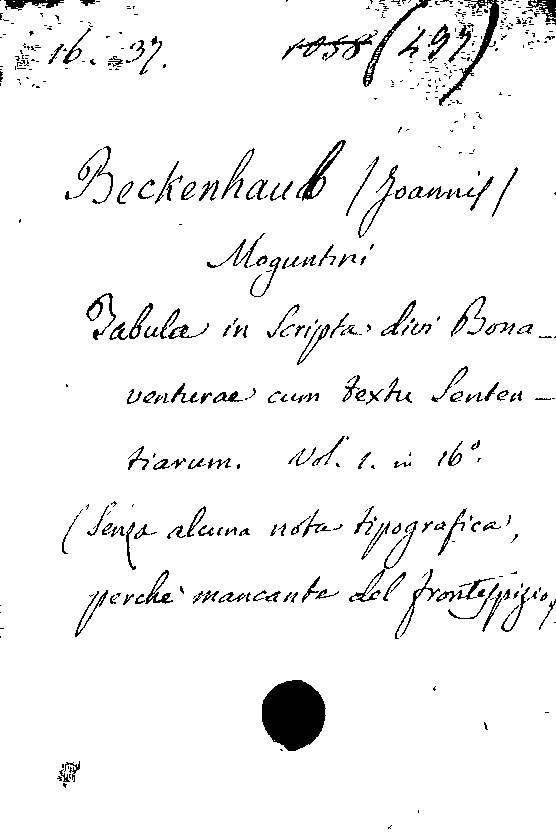 16. 37. 1058 (497)
Beckenhaub (Joannis)
Moguntini
Tabula in Scripta divi Bona_
venturae cum textu Senten_
tiarum. Vol. 1. in 16°.
(Senza alcuna nota tipografica,
perchè mancante del frontespizio,